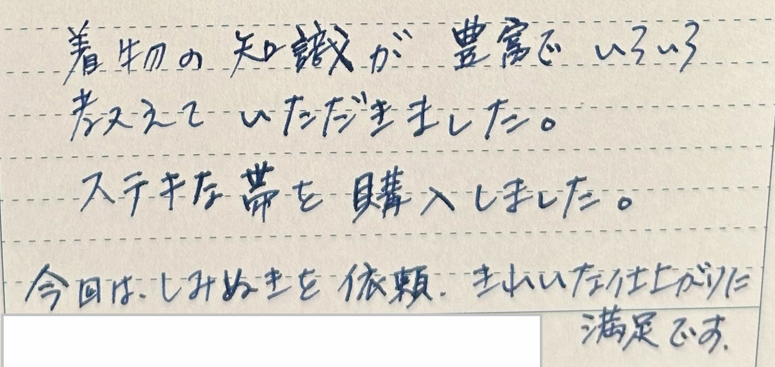 着物の知識が豊富でいろいろ
教えていただきました。
ステキな帯を購入しました。
今回は、しみぬきを依頼、きれいな仕上がりに
満足です。